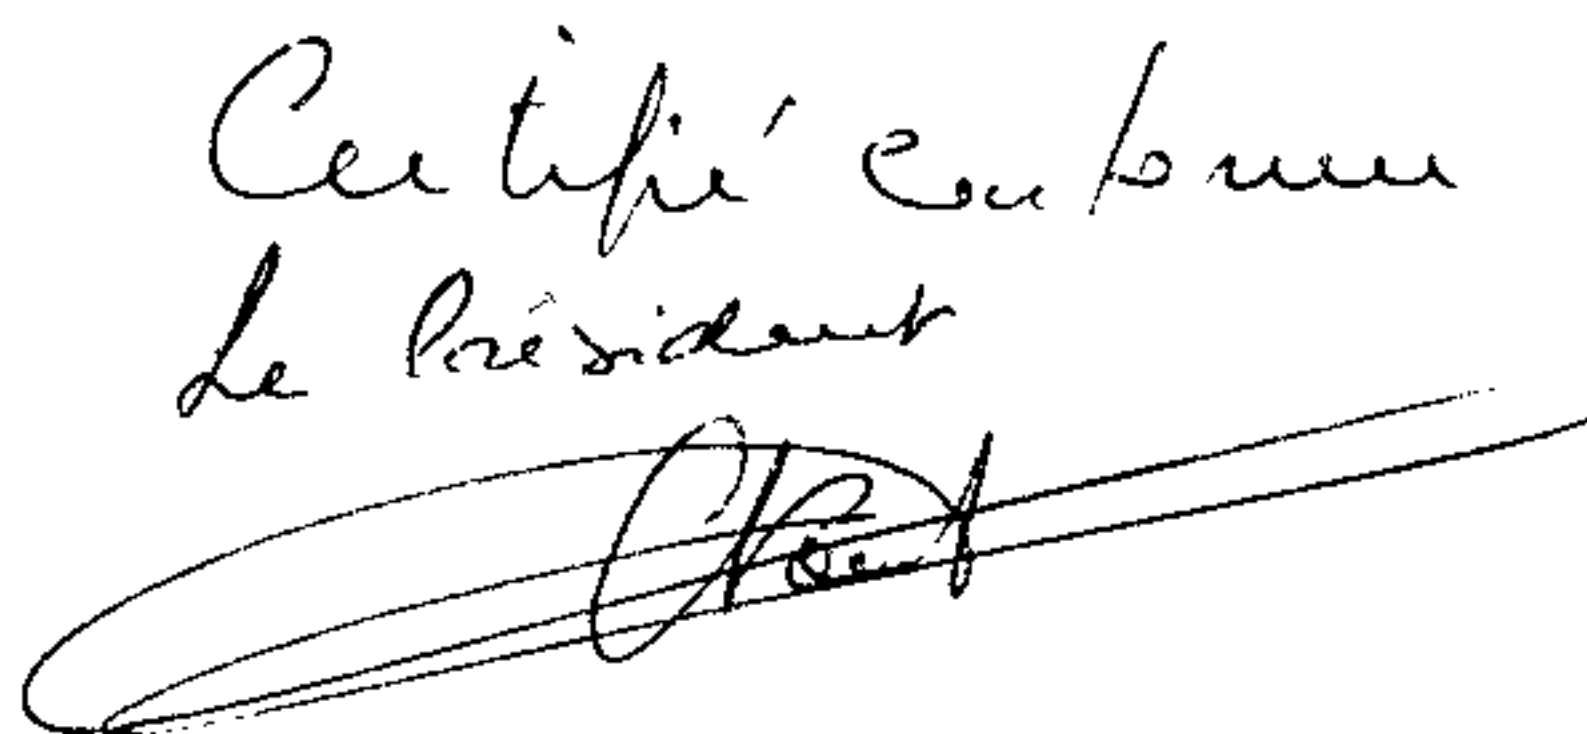 Certifié conforme
Le Président